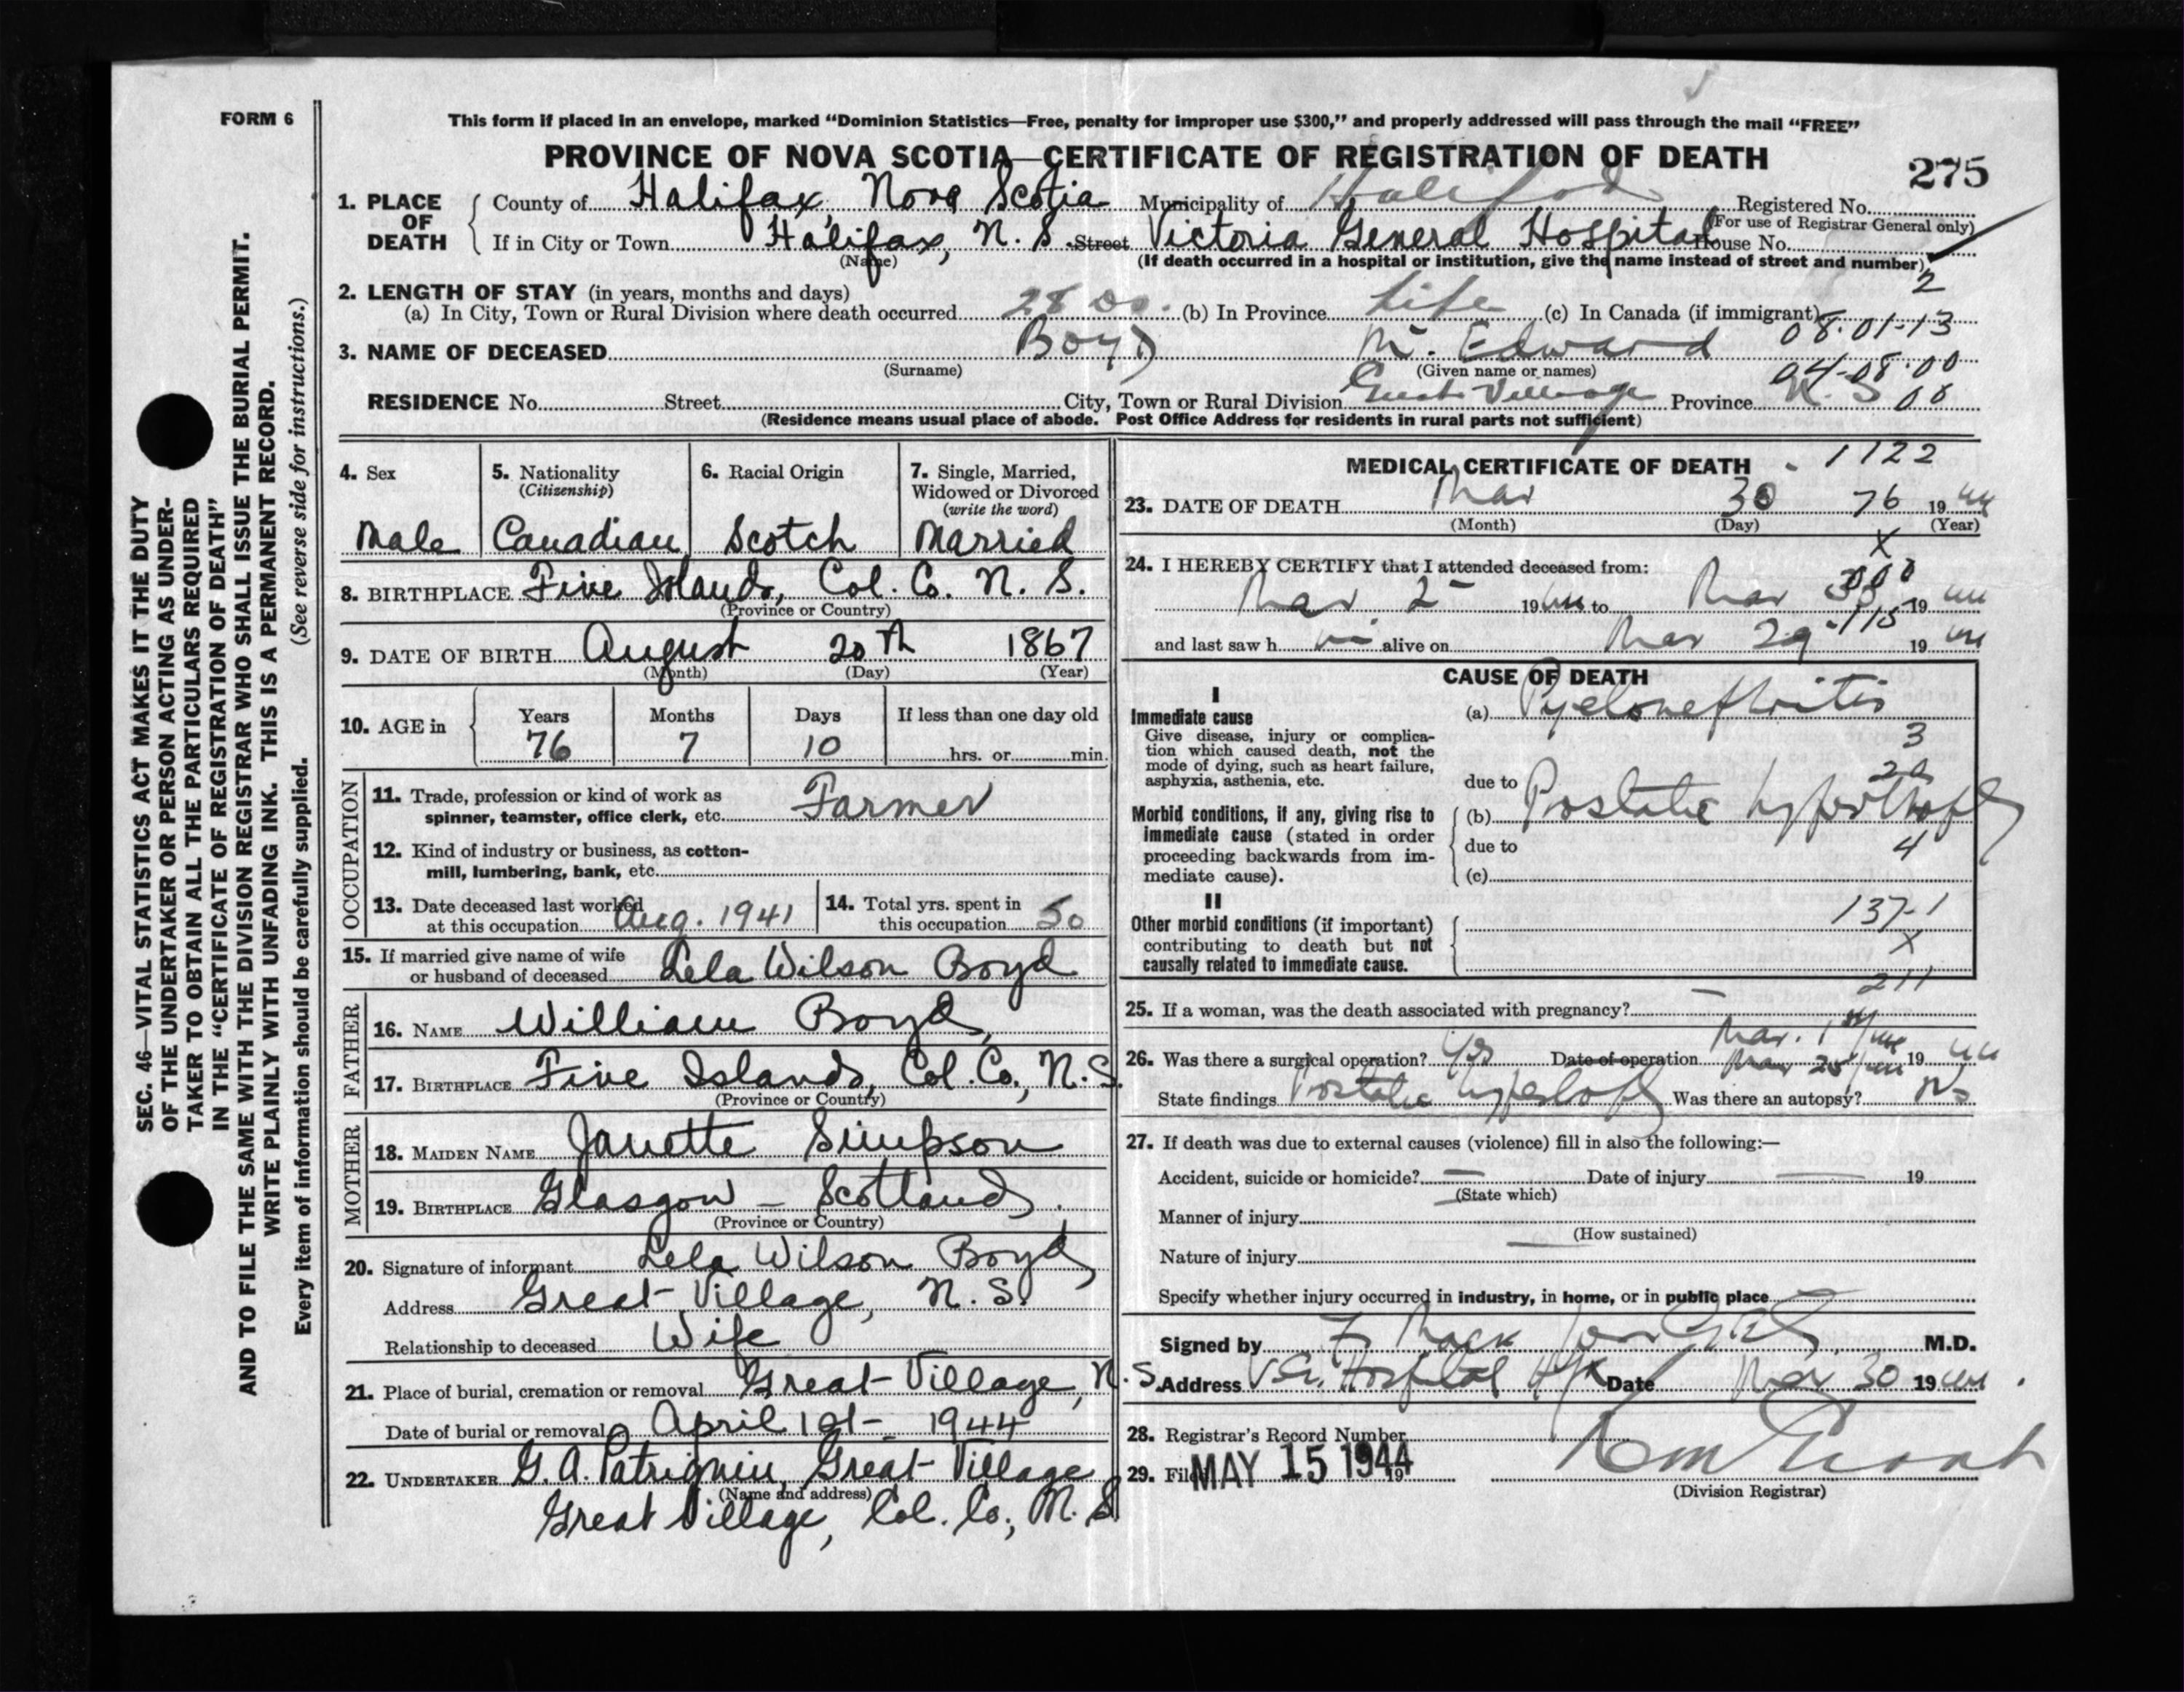 FORM 6
This form if placed in an envelope, marked "Dominion Statistics—Free, penalty for improper use $300," and properly addressed will pass through the mail "FREE"
PROVINCE OF NOVA SCOTIA—CERTIFICATE OF REGISTRATION OF DEATH
275
1. PLACE OF DEATH
County of Halifax, Nova Scotia Municipality of Halifax Registered No.
(For use of Registrar General only)
If in City or Town Halifax, N. S. Street Victoria General Hospital House No.
(Name) (If death occurred in a hospital or institution, give the name instead of street and number)
2
2. LENGTH OF STAY (in years, months and days)
(a) In City, Town or Rural Division where death occurred 28 Ds. (b) In Province Life (c) In Canada (if immigrant)
08-01-13
3. NAME OF DECEASED Boyd M. Edward
(Surname) (Given name or names)
04-08-00
RESIDENCE No. Street City, Town or Rural Division Great Village Province N. S 00
(Residence means usual place of abode. Post Office Address for residents in rural parts not sufficient)
4. Sex Male
5. Nationality (Citizenship) Canadian
6. Racial Origin Scotch
7. Single, Married, Widowed or Divorced (write the word) Married
8. BIRTHPLACE Five Islands, Col. Co. N. S.
(Province or Country)
9. DATE OF BIRTH August 20th 1867
(Month) (Day) (Year)
10. AGE in Years Months Days If less than one day old
76 7 10 hrs. or min.
OCCUPATION
11. Trade, profession or kind of work as
spinner, teamster, office clerk, etc. Farmer
12. Kind of industry or business, as cotton-
mill, lumbering, bank, etc.
13. Date deceased last worked
at this occupation Aug. 1941
14. Total yrs. spent in
this occupation 50
15. If married give name of wife
or husband of deceased Lela Wilson Boyd
FATHER
16. NAME William Boyd,
17. BIRTHPLACE Five Islands, Col. Co., N. S.
(Province or Country)
MOTHER
18. MAIDEN NAME Janette Simpson
19. BIRTHPLACE Glasgow - Scotland.
(Province or Country)
20. Signature of informant Lela Wilson Boyd
Address Great Village, N. S.
Relationship to deceased Wife
21. Place of burial, cremation or removal Great Village, N. S.
Date of burial or removal April 1st - 1944
22. UNDERTAKER G. A. Patriquin, Great Village
(Name and address)
Great Village, Col. Co., N. S
MEDICAL CERTIFICATE OF DEATH - 1122
23. DATE OF DEATH Mar 30 76 19 44
(Month) (Day) (Year)
X
24. I HEREBY CERTIFY that I attended deceased from:
000
Mar 2 - 19 44 to Mar 30 19 44
-115
and last saw h im alive on Mar 29 19 44
CAUSE OF DEATH
I
Immediate cause
Give disease, injury or complica-
tion which caused death, not the
mode of dying, such as heart failure,
asphyxia, asthenia, etc.
(a) Pyelonefhritis
3
20
due to
Morbid conditions, if any, giving rise to
immediate cause (stated in order
proceeding backwards from im-
mediate cause).
(b) Prostatic hyperthofy
due to 4
(c)
II
Other morbid conditions (if important)
contributing to death but not
causally related to immediate cause.
137-1
X
211
25. If a woman, was the death associated with pregnancy? —
26. Was there a surgical operation? Yes Date of operation Mar. 1st/44 Mar 25/44 19 44
State findings Prostatic hyperthofy Was there an autopsy? No
27. If death was due to external causes (violence) fill in also the following:—
Accident, suicide or homicide? — Date of injury — 19
(State which)
Manner of injury
(How sustained)
Nature of injury —
Specify whether injury occurred in industry, in home, or in public place
Signed by M.D.
Address V. G. Hospital Hfx Date Mar 30 19 44.
28. Registrar's Record Number
29. Filed MAY 15 1944 19
(Division Registrar)
SEC. 46—VITAL STATISTICS ACT MAKES IT THE DUTY
OF THE UNDERTAKER OR PERSON ACTING AS UNDER-
TAKER TO OBTAIN ALL THE PARTICULARS REQUIRED
IN THE "CERTIFICATE OF REGISTRATION OF DEATH"
AND TO FILE THE SAME WITH THE DIVISION REGISTRAR WHO SHALL ISSUE THE BURIAL PERMIT.
WRITE PLAINLY WITH UNFADING INK. THIS IS A PERMANENT RECORD.
Every item of information should be carefully supplied. (See reverse side for instructions.)